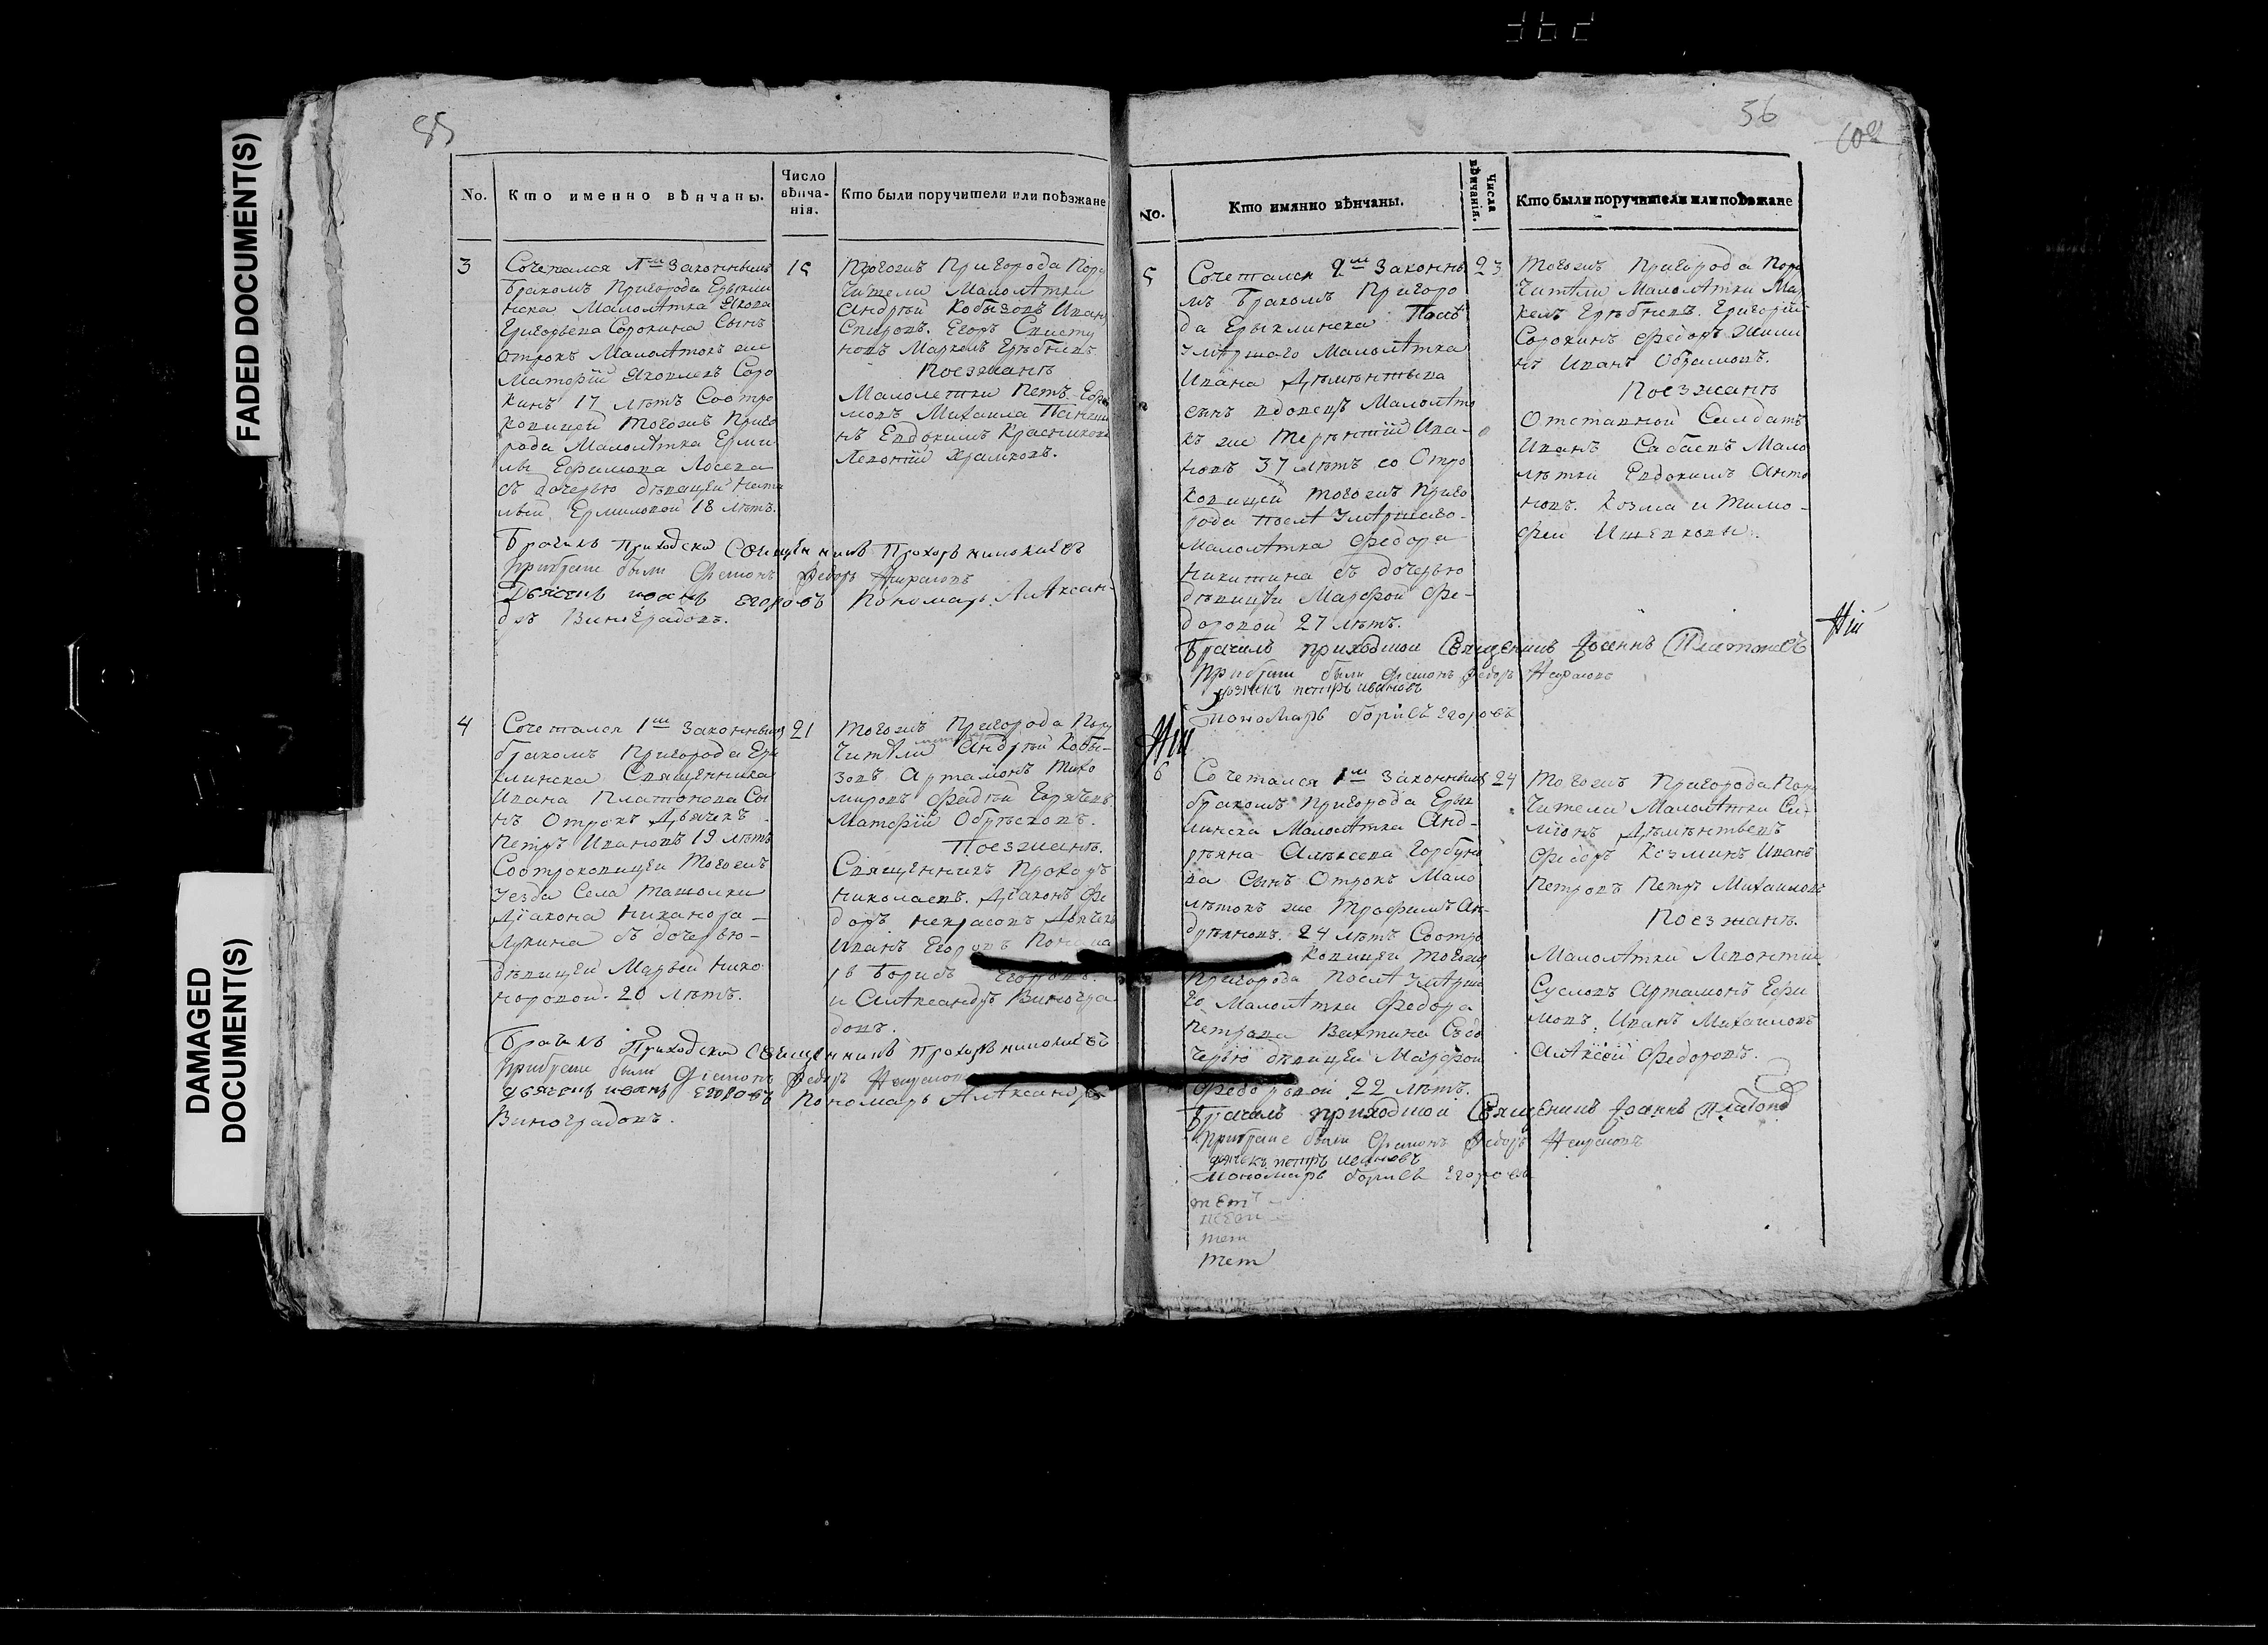 FADED DOCUMENT(S)
DAMAGED
DOCUMENT(S)
85
No.
Кто именно вѣнчаны.
Число
вѣнча-
нія.
Кто были поручители или поѣзжане
3
Сочетался 1мъ Законнымъ
бракомъ Пригорода Ерыкли
нска Малолѣтка Якова
Григорьева Сорокина Сынъ
отрокъ Малолѣтокъ же
Матөѣй Яковлевъ Соро
кинъ 17 лѣтъ Соотро
ковицей тогожъ Приго
рода Малолѣтка Ерми
лы Ефимова Лосева
съ дочерью дѣвицей
Ермиловой 18 лѣтъ.
15
Тогожъ Пригорода Пору
чители Малолѣтки
Андрѣй Кобызовъ Иванъ
Спировъ. Егоръ Свисту
новъ Маркелъ Грѣбневъ.
Поезжанѣ
Малолетки Петръ
мовъ Михаила
нъ Евдокимъ Красников
Левонтій Храмковъ.
Прихоцки Священникъ Прохоръ николаевъ
При были Федоръ
Дьячекъ иванъ егоровъ Пономарь Алѣксан-
дръ Виноградовъ.
4
Сочетался 1мъ Законнымъ
бракомъ Пригорода Еры
клинска Священника
Ивана Платонова Сы
нъ Отрокъ Дьячекъ
Петръ Ивановъ 19 лѣтъ
Соотроковицей тогожъ
уезда Села Ташолки
Діакона Никанора
Лукина съ дочерью
дѣвицей Марьей Нико
норовой. 20 лѣтъ.
21
Тогожъ Пригорода Пору
читѣли Андрѣй Кобы-
зовъ Артамонъ Тихо
мировъ Федѣй Горячевъ
Матөѣй Обрѣсковъ.
Поезжанѣ.
Священникъ Прохоръ
Николаевъ. Діаконъ Фе
доръ Некрасовъ Дьячекъ
Иванъ Егоровъ Понома
рь Борисъ Егоровъ.
и Алѣксандръ Виногра
довъ.
Прихоцки Священникъ Прохоръ николаевъ
При были Федоръ
дьячекъ иванъ егоровъ Пономарь Алѣксандръ
Виноградовъ.
56
No.
Кто имянно вѣнчаны.
Числа
вѣнчанія.
Кто были поручители или поѣзжане
5
Сочетался 2мъ Законны
мъ бракомъ Пригоро
да Ерыклинска Послѣ
умѣршаго Малолѣтка
Ивана Дѣмѣнтьева
сынъ вдовецъ Малолѣто
къ же Терѣнтій Ива-
новъ 37 лѣтъ со Отро
ковицей тогожъ Приго
рода послѣ умѣршаго
Малолѣтка Федора
Никитина съ дочерью
дѣвицей Марфой Фе-
доровой 27 лѣтъ.
23
Тогожъ Пригорода Пору
читѣли Малолѣтки Ма
келъ Грѣбневъ. Григорій
Сорокинъ Федоръ Жили
нъ Иванъ Обрамовъ.
Поезжанѣ
Отставной Салдатъ
Иванъ Сабаевъ Мало
лѣтки Евдокимъ Анто
новъ. Козма и Тимо-
фей
Брачилъ приходцкой Священникъ Іоаннъ Платоновъ
При были Федоръ
дьячекъ петръ ивановъ
Пономарь борисъ егоровъ
6
Сочетался 1мъ Законнымъ
бракомъ Пригорода Ерык
линска Малолѣтка Анд-
рѣяна Алѣксева Горбуно
ва Сынъ Отрокъ Мало
лѣтокъ же Трофимъ Ан-
дрѣяновъ. 24 лѣтъ Соотро
ковицей тогожъ
Пригорода послѣ умѣрша
го Малолѣтка Федора
Петрова Вахтина Съ до
черью дѣвицей Марфой
Федоровой 22 лѣтъ.
24
Тогожъ Пригорода Пору
чители Малолѣтки Се-
міонъ Дѣмѣнтьевъ
Федоръ Козминъ Иванъ
Петровъ Петръ Михаиловъ
Поезжанѣ.
Малолѣтки Левонтій
Сусловъ Артамонъ Ефи
мовъ. Иванъ Михаиловъ
Алѣксѣй Федоровъ.
Брачилъ приходцкой Священникъ Іоаннъ Платонв
При были Федоръ
дьячекъ петръ ивановъ
Пономарь борисъ егоровъ